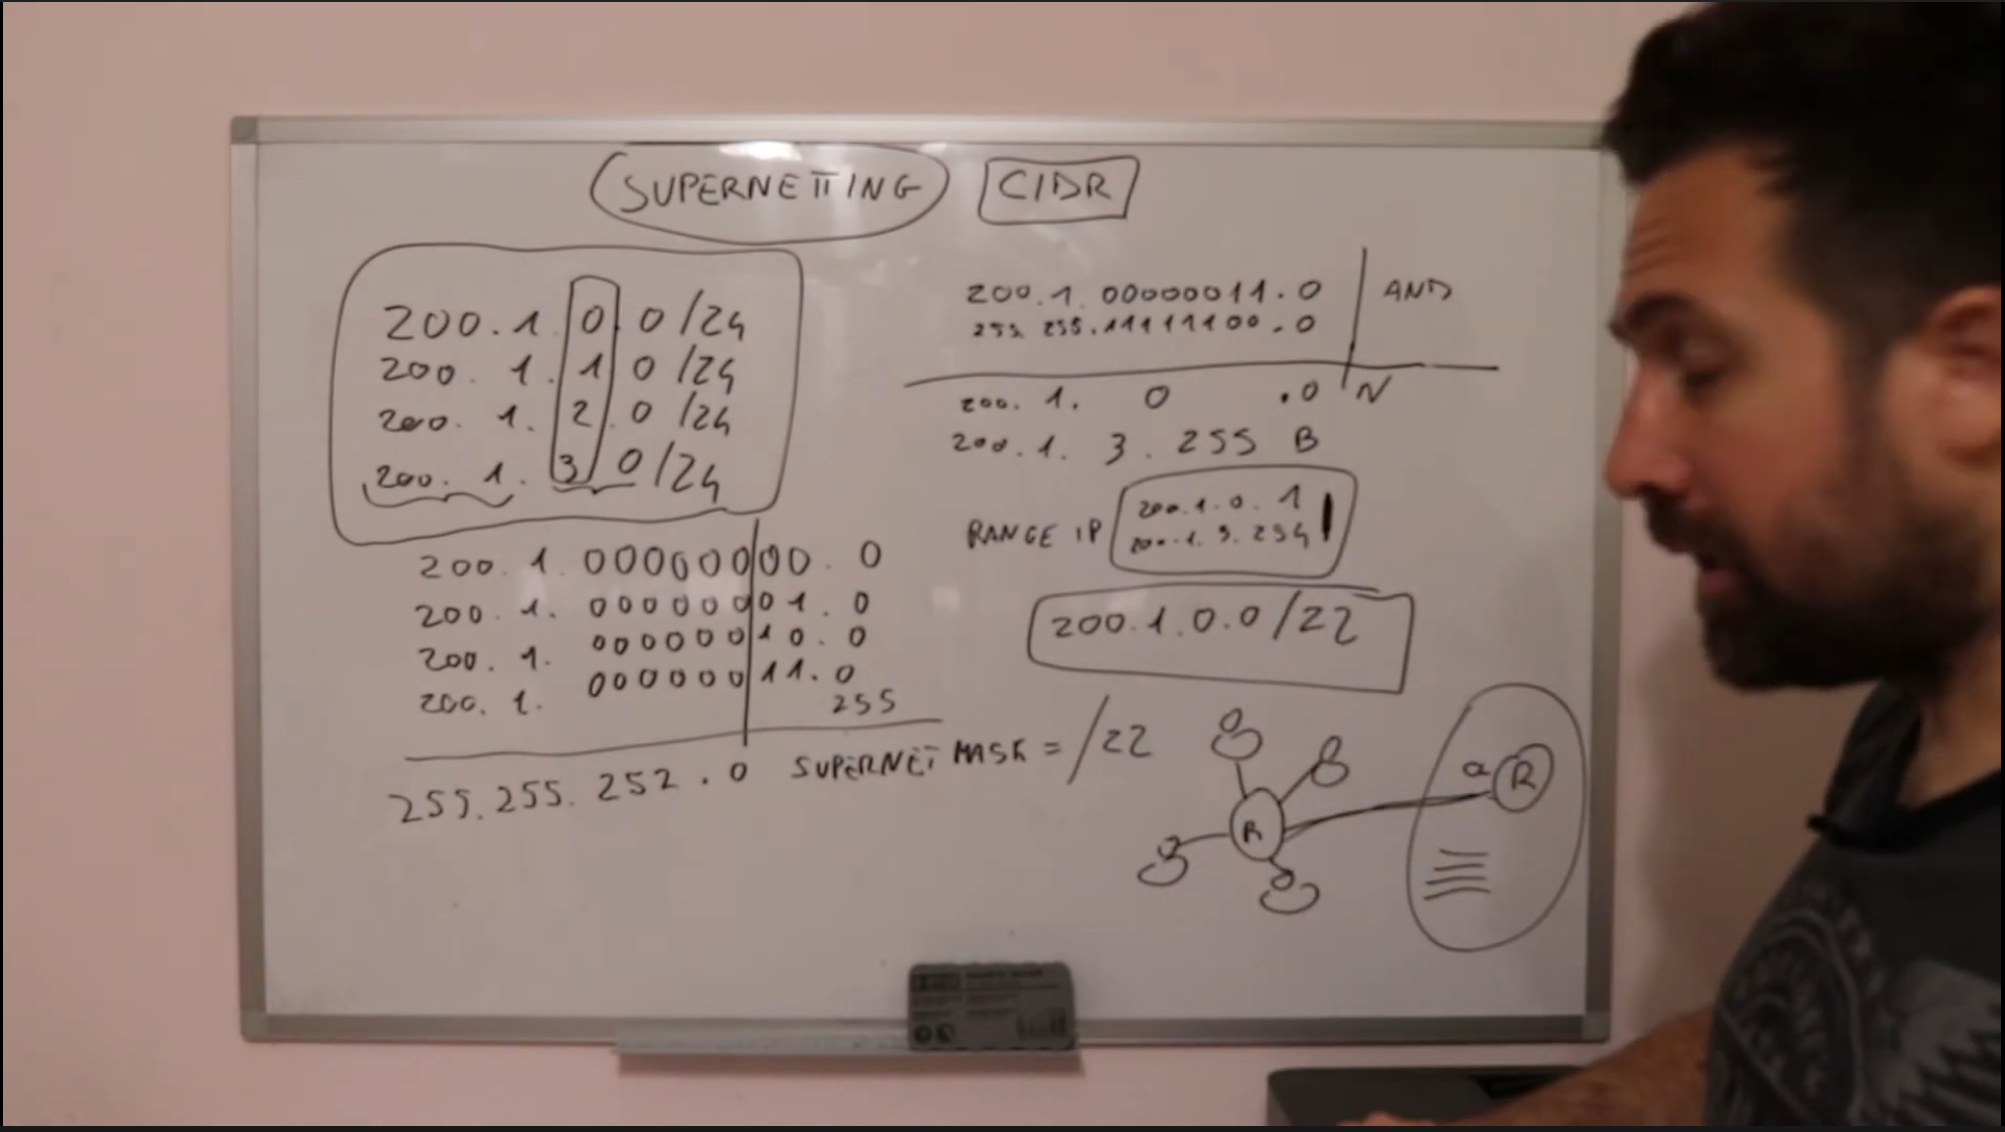 SUPERNETTING CIDR
200.1.0.0/24
200.1.1.0/24
200.1.2.0/24
200.1.3.0/24
200.1.00000000.0
200.1.00000001.0
200.1.00000010.0
200.1.00000011.0
255
255.255.252.0 SUPERNET MASK = /22
200.1.00000011.0 AND
255.255.11111100.0
200.1.0.0 N
200.1.3.255 B
RANGE IP 200.1.0.1
200.1.3.254
200.1.0.0/22
R
a R